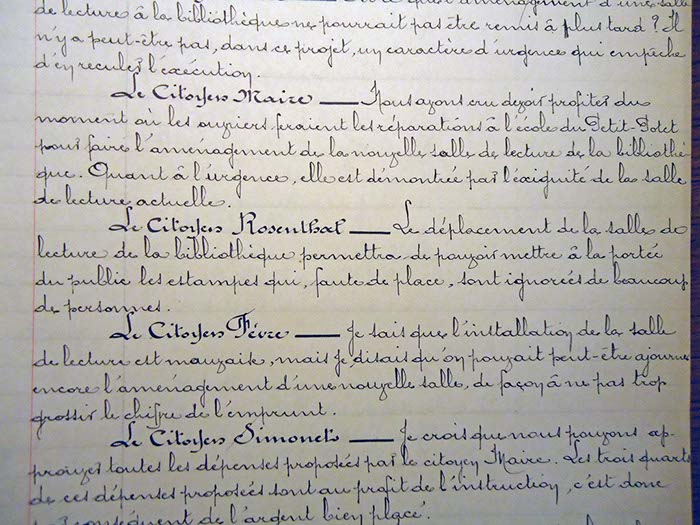 l'aménagement d'une salle
de lecture à la bibliothèque ne pourrait pas être remis à plus tard ? Il
n'y a peut-être pas, dans ce projet, un caractère d'urgence qui empêche
d'en reculer l'exécution.
Le Citoyen Maire — Nous avons cru devoir profiter du
moment où les ouvriers feraient les réparations à l'école du Petit-Potet
pour faire l'aménagement de la nouvelle salle de lecture de la bibliothè
que. Quant à l'urgence, elle est démontrée par l'exiguité de la salle
de lecture actuelle.
Le Citoyen Rosenthal — Le déplacement de la salle de
lecture de la bibliothèque permettra de pouvoir mettre à la portée
du public les estampes qui, faute de place, sont ignorées de beaucoup
de personnes.
Le Citoyen Fèvre — Je sais que l'installation de la salle
de lecture est mauvaise, mais je disais qu'on pouvait peut-être ajourner
encore l'aménagement d'une nouvelle salle, de façon à ne pas trop
grossir le chiffre de l'emprunt.
Le Citoyen Simonet — Je crois que nous pouvons ap-
prouver toutes les dépenses proposées par le citoyen Maire. Les trois quarts
de ces dépenses proposées sont au profit de l'instruction, c'est donc
par conséquent de l'argent bien placé.